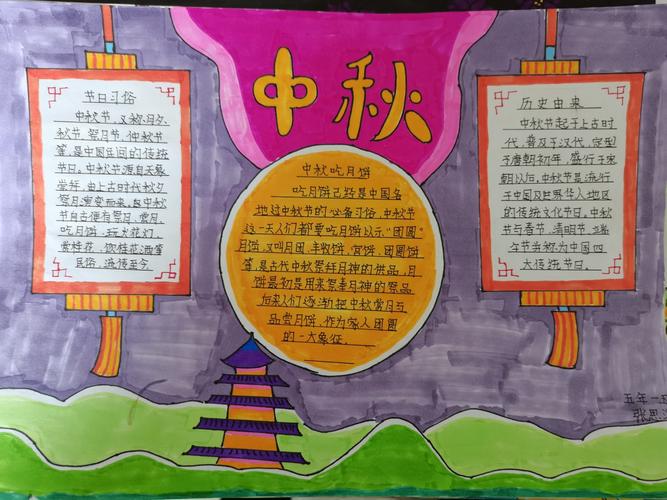 中秋
节日习俗
中秋节，又称月夕、
秋节、祭月节、仲秋节
等，是中国民间的传统
节日。中秋节源自天象
崇拜，由上古时代秋夕
祭月演变而来。自中秋
节自古便有祭月、赏月、
吃月饼、玩火花灯、
赏桂花、饮桂花酒等
民俗，流传至今
中秋吃月饼
吃月饼已经是中国各
地过中秋节的必备习俗，中秋节
这一天人们都要吃月饼以示“团圆”
月饼，又叫月团、丰收饼、宫饼、团圆饼
等，是古代中秋祭拜月神的供品，月
饼最初是用来祭奉月神的祭品
后来人们逐渐把中秋赏月与
品尝月饼，作为家人团圆
的一大象征。
历史由来
中秋节起于上古时
代，普及于汉代，定型
于唐朝初年，盛行于宋
朝以后，中秋节是流行
于中国及世界华人地区
的传统文化节日。中秋
节与春节、清明节、端
午节当称为中国四
大传统节日。
五年一班
张思